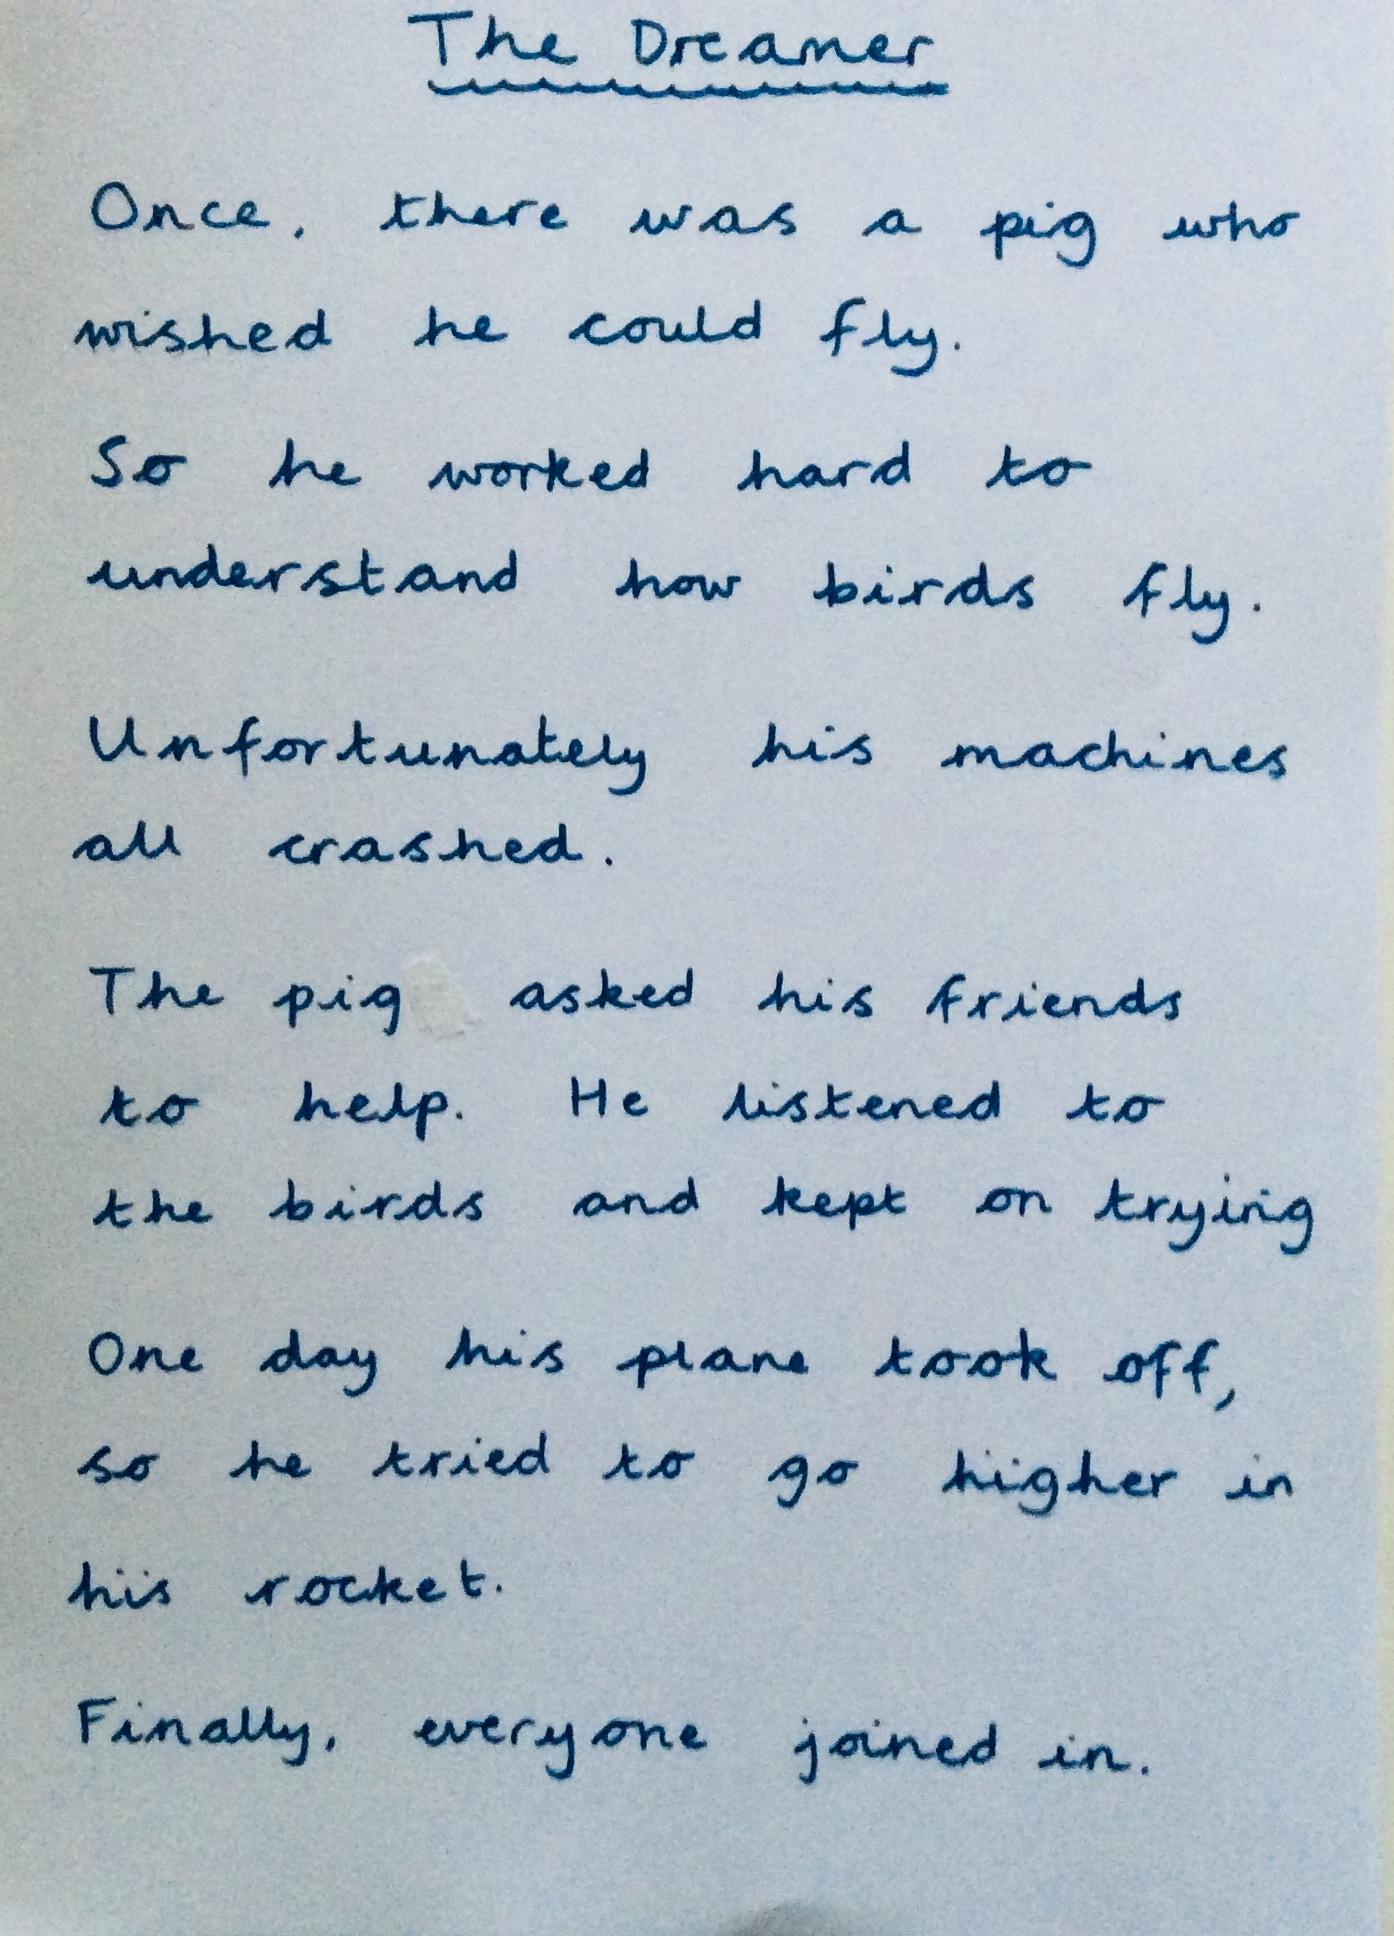 The Dreamer
Once, there was a pig who
wished he could fly.
So he worked hard to
understand how birds fly.
Unfortunately his machines
all crashed.
The pig asked his friends
to help. He listened to
the birds and kept on trying
One day his plane took off,
so he tried to go higher in
his rocket.
Finally, everyone joined in.